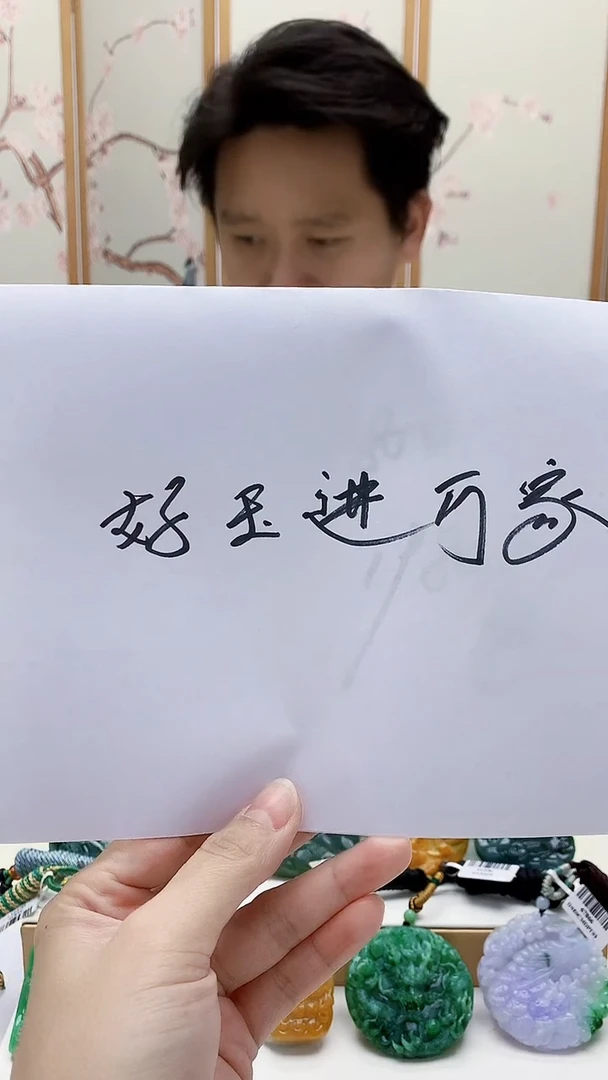 好玉进万家